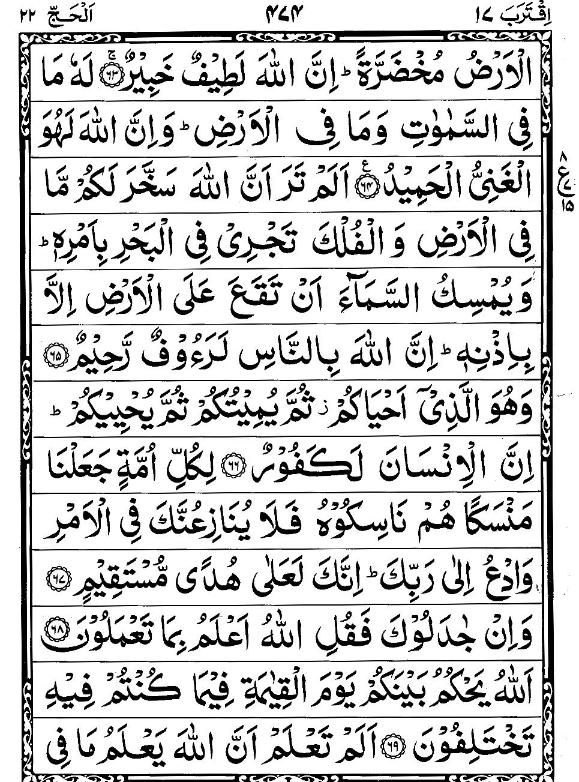 اِقْتَرَبَ ١٧ ٤٧٤ اَلْحَجّ ٢٢
الْاَرْضُ مُخْضَرَّةً ؕ اِنَّ اللّٰهَ لَطِيْفٌ خَبِيْرٌ ۚ ﴿٦٣﴾ لَهٗ مَا
فِى السَّمٰوٰتِ وَمَا فِى الْاَرْضِ ؕ وَاِنَّ اللّٰهَ لَهُوَ
الْغَنِىُّ الْحَمِيْدُ ﴿٦٤﴾ ع اَلَمْ تَرَ اَنَّ اللّٰهَ سَخَّرَ لَكُمْ مَّا
٨ ع ٧ ١٥
فِى الْاَرْضِ وَالْفُلْكَ تَجْرِىْ فِى الْبَحْرِ بِاَمْرِهٖ ؕ
وَيُمْسِكُ السَّمَآءَ اَنْ تَقَعَ عَلَى الْاَرْضِ اِلَّا
بِاِذْنِهٖ ؕ اِنَّ اللّٰهَ بِالنَّاسِ لَرَءُوْفٌ رَّحِيْمٌ ﴿٦٥﴾
وَهُوَ الَّذِىْۤ اَحْيَاكُمْ ز ثُمَّ يُمِيْتُكُمْ ثُمَّ يُحْيِيْكُمْ ؕ
اِنَّ الْاِنْسَانَ لَـكَفُوْرٌ ﴿٦٦﴾ لِكُلِّ اُمَّةٍ جَعَلْنَا
مَنْسَكًا هُمْ نَاسِكُوْهُ فَلَا يُنَازِعُنَّكَ فِى الْاَمْرِ
وَادْعُ اِلٰى رَبِّكَ ؕ اِنَّكَ لَعَلٰى هُدًى مُّسْتَقِيْمٍ ﴿٦٧﴾
وَاِنْ جٰدَلُوْكَ فَقُلِ اللّٰهُ اَعْلَمُ بِمَا تَعْمَلُوْنَ ﴿٦٨﴾
اَللّٰهُ يَحْكُمُ بَيْنَكُمْ يَوْمَ الْقِيٰمَةِ فِيْمَا كُنْتُمْ فِيْهِ
تَخْتَلِفُوْنَ ﴿٦٩﴾ اَلَمْ تَعْلَمْ اَنَّ اللّٰهَ يَعْلَمُ مَا فِى